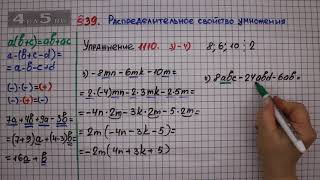 4АГДЗ
§39. Распределительное свойство умножения
a(b+c)=ab+ac
a-(b+c-d)=
=a-b-c+d
(-)·(-)=(+)
(-)·(+)=(-)
7a+4b+9a-3b=
=(7+9)a+(4-3)b=
=16a+b
Упражнение 1110. 3)-4)
8; 6; 10 : 2
3) -8mn-6mk-10m=
=2·(-4)mn-2·3mk-2·5m=
=-4n·2m-3k·2m-5·2m=
=2m(-4n-3k-5)=
=-2m(4n+3k+5)
8abc-24abd-6ab=